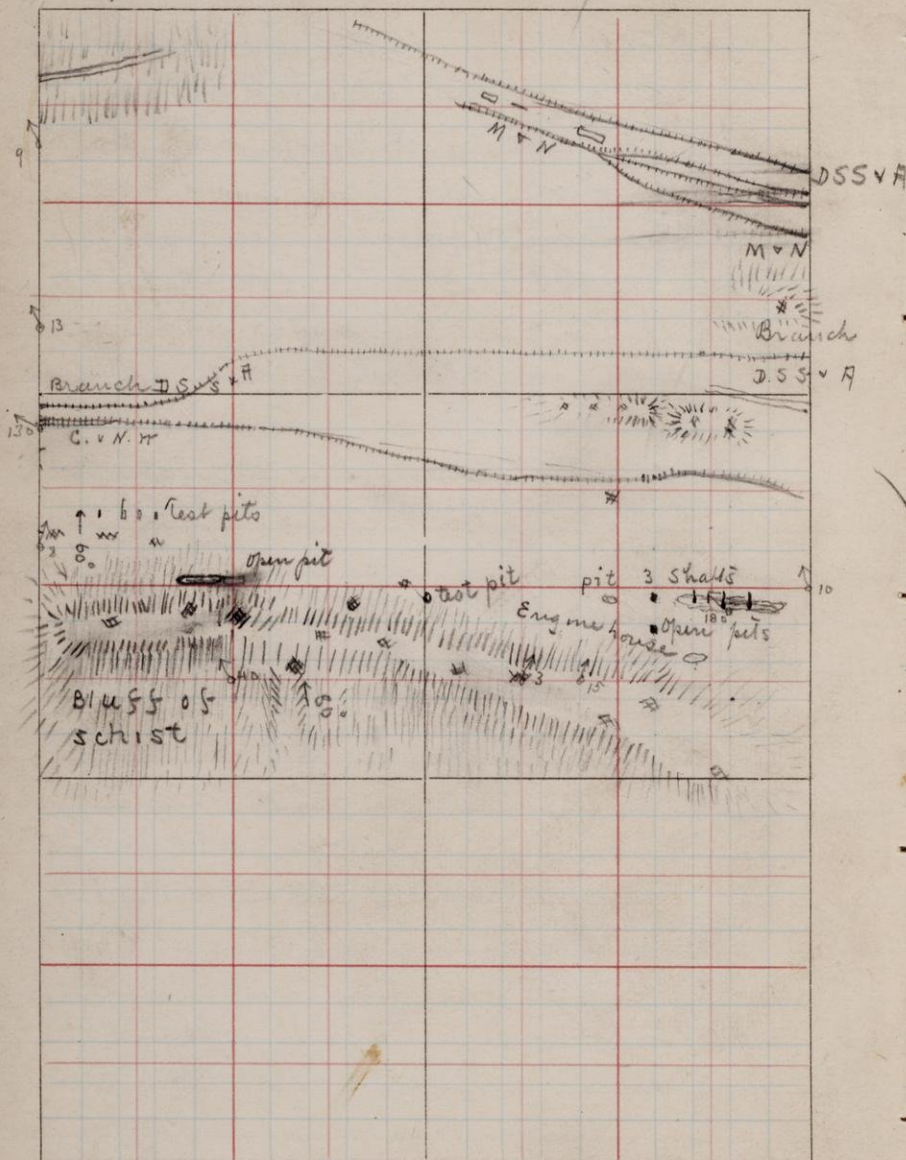 9
M & N
DSS & A
M & N
13
Branch
Branch D S S & A
D. S S & A
13
C. & N. W
6 . Test pits
60°
open pit
test pit
pit
3 Shafts
10
180
Engine house
open pits
3
15
60°
Bluff of
schist